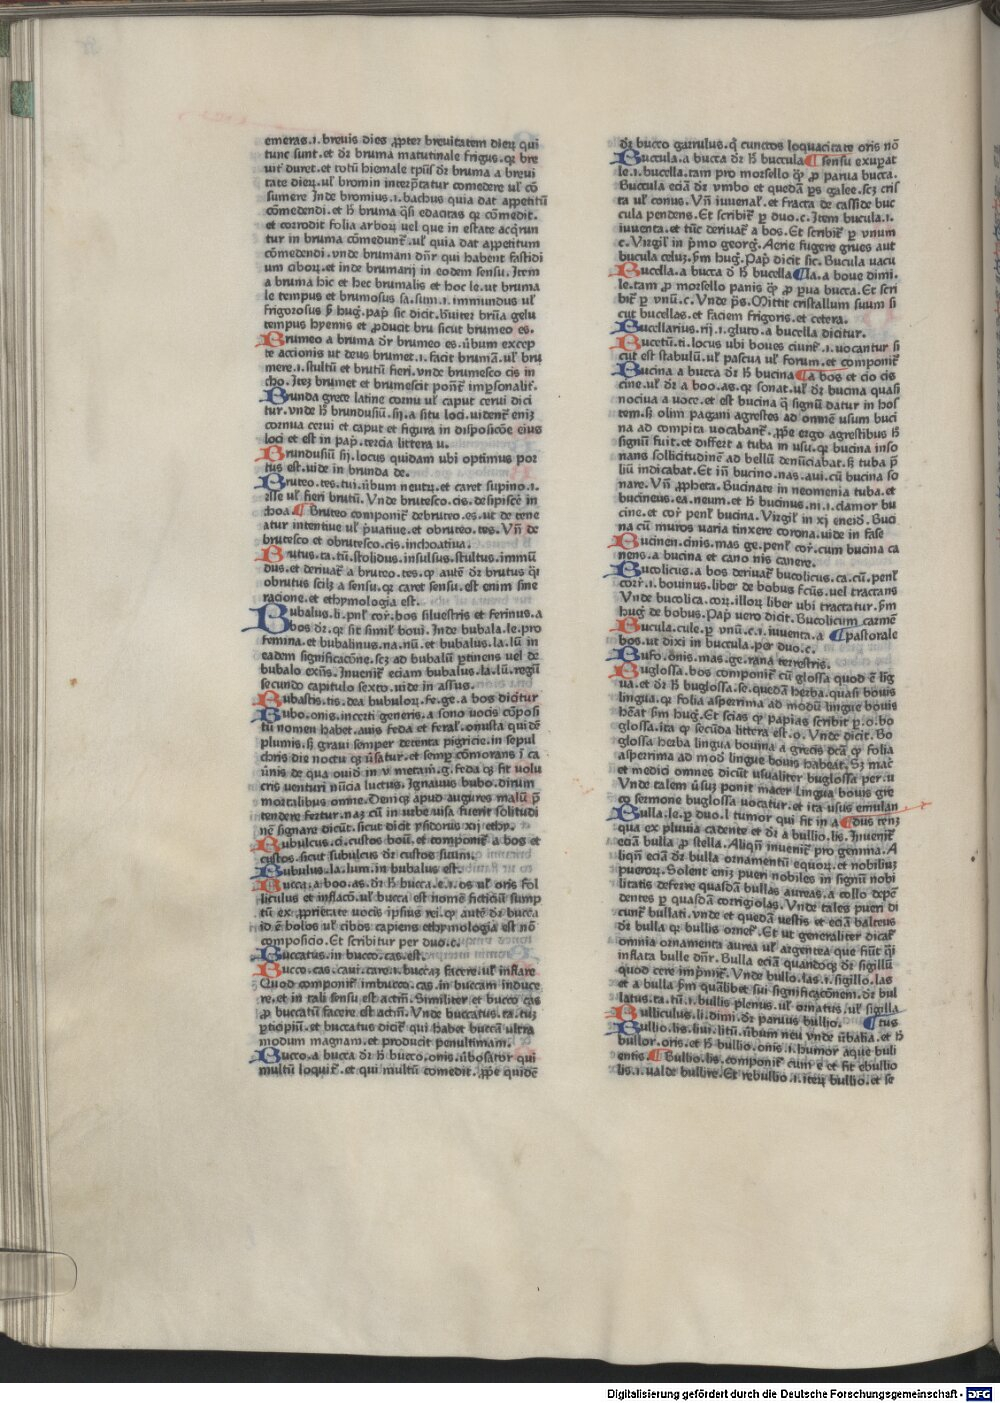 emeras.i. brevis dies ꝓpter brevitatem dieꝝ qui
tunc sunt.et dr̄ bruma matutinale frigus.qꝛ bre
vit᷑ duret.et totū hiemale tp̄us dr̄ bruma a brevi
tate dieꝝ.ul᷑ bromin interp̄tatur comedere ul᷑ cō
sumere Inde bromius.i.bachus quia dat appetitū
cōmedendi.et h̄ bruma q̄si edacitas qꝛ cōmedit.
et corrodit folia arboꝝ uel que in estate acq̄run
tur in bruma cōmedunt᷑.ul᷑ quia dat appetitum
cōmedendi.vnde brumani dn̄r qui habent fastidi
um ciboꝝ.et inde brumarij in eodem sensu. Item
a bruma hic et hec brumalis et hoc le.ut bruma
le tempus et brumosus sa.sum.i.immundus ul᷑
frigorosus ẜm hug.pap̄ sic dicit.bruma gelu
tempus hyemis et ꝓducit bru sicut brumeo es.
Brumeo a bruma dr̄ brumeo es.ūbum excep
te accionis ut deus brumet.i.facit brumā.ul᷑ bru
mere.i.stultū et brutū fieri.vnde brumesco cis in
cho.Iteꝫ brumet et brumescit ponūt᷑ imp̄sonalit᷑.
Brunda grece latine cornu ul᷑ caput cerui dici
tur.vnde h̄ brundusiū.sij.a situ loci.uident᷑ eniꝫ
cornua cerui et caput et figura in disposicōe eius
loci et est in pap̄.tercia littera u.
Brundusiū sij.locus quidam ubi optimus por
tus est.uide in brunda de.
Bruteo.tes.tui.ūbum neutꝝ.et caret supino.i.
esse ul᷑ fieri brutū. Vnde brutesco.cis.desipiscē in
choa. ¶ Bruteo componit᷑ debruteo.es.ut de tene
atur intentiue ul᷑ p̄uatiue.et obruteo.tes. Vn̄ de
brutesco et obrutesco.cis.inchoatiua.
Brutus.ta.tū.stolidus.insulsus.stultus.immū
dus.et deriuat᷑ a bruteo.tes.qꝫ autē dr̄ brutus q̄i
obrutus scilꝫ a sensu.qꝛ caret sensu.est enim sine
racione.et ethymologia est.
Bubalus.li.pnl᷑ cor᷑.bos siluestris et ferinus.a
bos dr̄.qꝛ sit simil᷑ boui. Inde bubala.le.pro
femina.et bubalinus.na.nū.et bubalus.la.lū in
eadem significacōne.scꝫ ad bubalū ꝑtinens uel de
bubalo exn̄s. Inuenit᷑ eciam bubalus.la.lū.regū
secundo capitulo sexto.uide in assus.
Bubastis.tis.dea bubuloꝝ.fe.ge.a bos dicitur
Bubo.onis.incerti generis.a sono uocis cōposi
tū nomen habet.auis feda et feral᷑.onusta quidē
plumis.sꝫ graui semper detenta pigricie.in sepul
chris die noctu qꝫ ūsatur.et semꝑ cōmorans ī ca
u̅nis de qua ouid in v metam᷑.g.feda qꝫ fit uolu
cris venturi nūcia luctus. Ignauus bubo.dirum
mortalibus omne. Deniqꝫ apud augures malū p̄
tendere fertur.naꝫ cū in urbe uisa fuerit solitudi
nē signare dicūt.sicut dicit ysicorus xij ethy.
Bubulcus.ci.custos boū.et componit᷑ a bos et
custos.sicut subulcus dr̄ custos suum.
Bubulus.la.lum.in bubalus est.
Bucca.a boo.as.dr̄ h̄ bucca.e.i.os ul᷑ oris fol
liculus et inflacō.ul᷑ bucca est nomē ficticiū sump
tū ex ꝓprietate uocis ipsius rei.qꝫ autē dr̄ bucca
id ē bolos ul᷑ cibos capiens ethymologia est nō
composicio. Et scribitur per duo.c.
Buccatus.in bucco.cas.est.
Bucco.cas.caui.care.i.buccaꝫ facere.ul᷑ inflare
Quod componit᷑ imbucco.cas.in buccam induce
re.et in tali sensu est actiū. Similiter et bucco cas
ꝓ buccatū facere.est actiū. Vnde buccatus.ta.tuꝫ
ꝑticipiū.et buccatus dicit᷑ qui habet buccā ultra
modum magnam.et producit penultimam.
Bucco.a bucca dr̄ h̄ bucco.onis.ūbosator qui
multū loquit᷑.et qui multū comedit.ꝓpe quidē
dr̄ bucco garrulus.q̄ cunctos loquacitate oris nō
Buccula.a bucca dr̄ h̄ buccula ¶ sensu exuꝑat
le.i.bucella.tam pro morsello qꝫ ꝓ parua bucca.
Buccula eciā dr̄ vmbo et quedā ꝑs galee.scꝫ cris
ta ul᷑ conus. Vn̄ iuuenal᷑.et fracta de casside buc
cula pendens. Et scribit᷑ ꝑ duo.c. Item bucula.i.
iuuenta.et tūc deriuat᷑ a bos. Et scribit᷑ ꝑ vnum
c. Virgil᷑ in p̄mo georg᷑. Aerie fugere grues aut
bucula celuꝫ.ẜm hug.Pap̄ dicit sic. Bucula uacu
Bucella.a bucca d h̄ bucella ¶ la.a boue dimi.
le.tam ꝓ morsello panis qꝫ ꝓ ꝑua bucca. Et scri
bit᷑ ꝑ vnū.c. Vnde p̄s. Mittit cristallum suum si
cut bucellas.et faciem frigoris.et cetera.
Bucellarius.rij.i.gluto.a bucella dicitur.
Bucetū.ti.locus ubi boues ciunt᷑.i.uocantur si
cut est stabulū.ul᷑ pascua ul᷑ forum.et componit᷑
Bucina a bucca dr̄ h̄ bucina ¶ a bos et cio cis
cine.ul᷑ dr̄ a boo.as.qꝛ sonat.ul᷑ dr̄ bucina quasi
nociua a uoce.et est bucina q̄ signū datur in hos
tem.sꝫ olim pagani agrestes ad omnē usum buci
na ad compita uocabant᷑.ꝓpe ergo agrestibus h̄
signū fuit.et differt a tuba in usu.qꝛ bucina inso
nans sollicitudinē ad bellū denūciabat.sꝫ tuba p̄
liū indicabat. Et in̄ bucino.nas.aui.cū bucina so
nare. Vn̄ ꝓpheta. Bucinate in neomenia tuba.et
bucineus.ea.neum.et h̄ bucinus.ni.i.clamor bu
cine.et cor᷑ penl᷑ bucina. Virgil᷑ in xj eneid᷑. Buci
na cū muros uaria tinxere corona.uide in fase
Bucinen.cinis.mas ge.penl᷑ cor᷑.cum bucina ca
nens.a bucina et cano nis canere.
Bucolicus.a bos deriuat᷑ bucolicus.ca.cū.penl᷑
cor᷑.i.bouinus.liber de bobus fc̄us.uel tractans
Vnde bucolica.coꝝ.illoꝝ liber ubi tractatur.ẜm
hug᷑ de bobus.Pap̄ uero dicit. Bucolicum carmē
Bucula.cule.ꝑ vnū.c.i.iuuenta.a ¶ pastorale
bos.ut dixi in buccula.per duo.c.
Bufo.onis.mas.ge.rana terrestris.
Buglossa.bos componit᷑ cū glossa quod ē lig̅
ua.et dr̄ h̄ buglossa.se.quedā herba.quasi bouis
lingua.qꝛ folia asperrima ad modū lingue bouis
heāt ẜm hug᷑. Et scias qꝫ papias scribit ꝑ.o.bo
glossa.ita qꝫ secūda littera est.o. Vnde dicit. Bo
glossa herba lingua bouina a grecis dc̄a.qꝫ folia
asperrima ad mod᷑ lingue bouis habeāt. Sꝫ mac᷑
et medici omnes dicūt usualiter buglossa per.u
Vnde talem ūsuꝫ ponit macer Lingua bouis gre
co sermone buglossa uocatur.et ita usus emulan
Bulla.le.ꝑ duo.l tumor qui fit in a ¶ dus tenꝫ
qua ex pluuia cadente et dr̄ a bullio.lis. Inuenit᷑
eciā bulla ꝓ stella. Aliqn̄ inuenit᷑ pro gemma. A
liqn̄ eciā dr̄ bulla ornamentū equoꝝ.et nobiliuꝫ
pueroꝝ. Solent eniꝫ pueri nobiles in signū nobi
litatis deferre quasdā bullas aureas.a collo depē
dentes ꝑ quasdā corrigiolas. Vnde tales pueri di
cunt᷑ bullati.vnde et quedā uestis et eciā balteus
dr̄ bulla qꝛ bullis ornet᷑. Et ut generaliter dicat᷑
omnia ornamenta aurea ul᷑ argentea que fiūt q̄i
inflata bulle dn̄r. Bulla eciā quandoqꝫ dr̄ sigillū
quod cere imp̄mit᷑. Vnde bullo.las.i.sigillo.las
et a bulla ẜm quālibet sui significacōnem.dr̄ bul
latus.ta.tū.i.bullis plenus.ul᷑ ornatus.ul᷑ sigilla
Bulliculus.li.dimi.dr̄ paruus bullio. ¶ tus
Bullio.lis.liui.litū.ūbum neu vnde ūbalia.et h̄
bullor.oris.et h̄ bullio.onis.i.humor aque buli
entis. ¶ Bullio.lis.componit᷑ cum e et fit ebullio
lis.i.ualde bullire. Et rebullio.i.iteꝝ bullio.et se
Digitalisierung gefördert durch die Deutsche Forschungsgemeinschaft - DFG